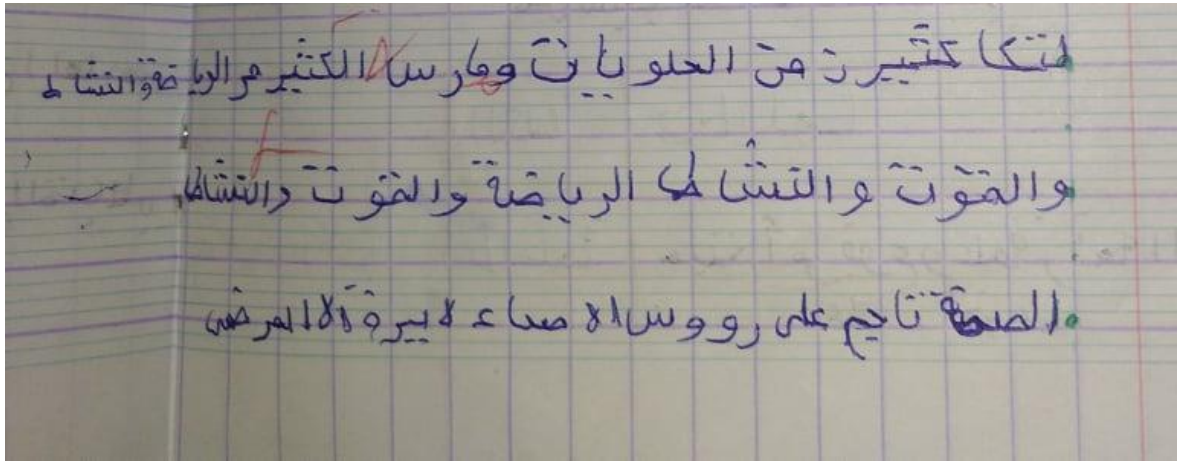 لتكا كثيرت من الحلويات ومارس الكثير من الرياضة والنشاط
والقوت والنشاط الرياضة والقوت والنشاط
الصحة تاجم على رووس الاصحاء لا يرة الا المرضى